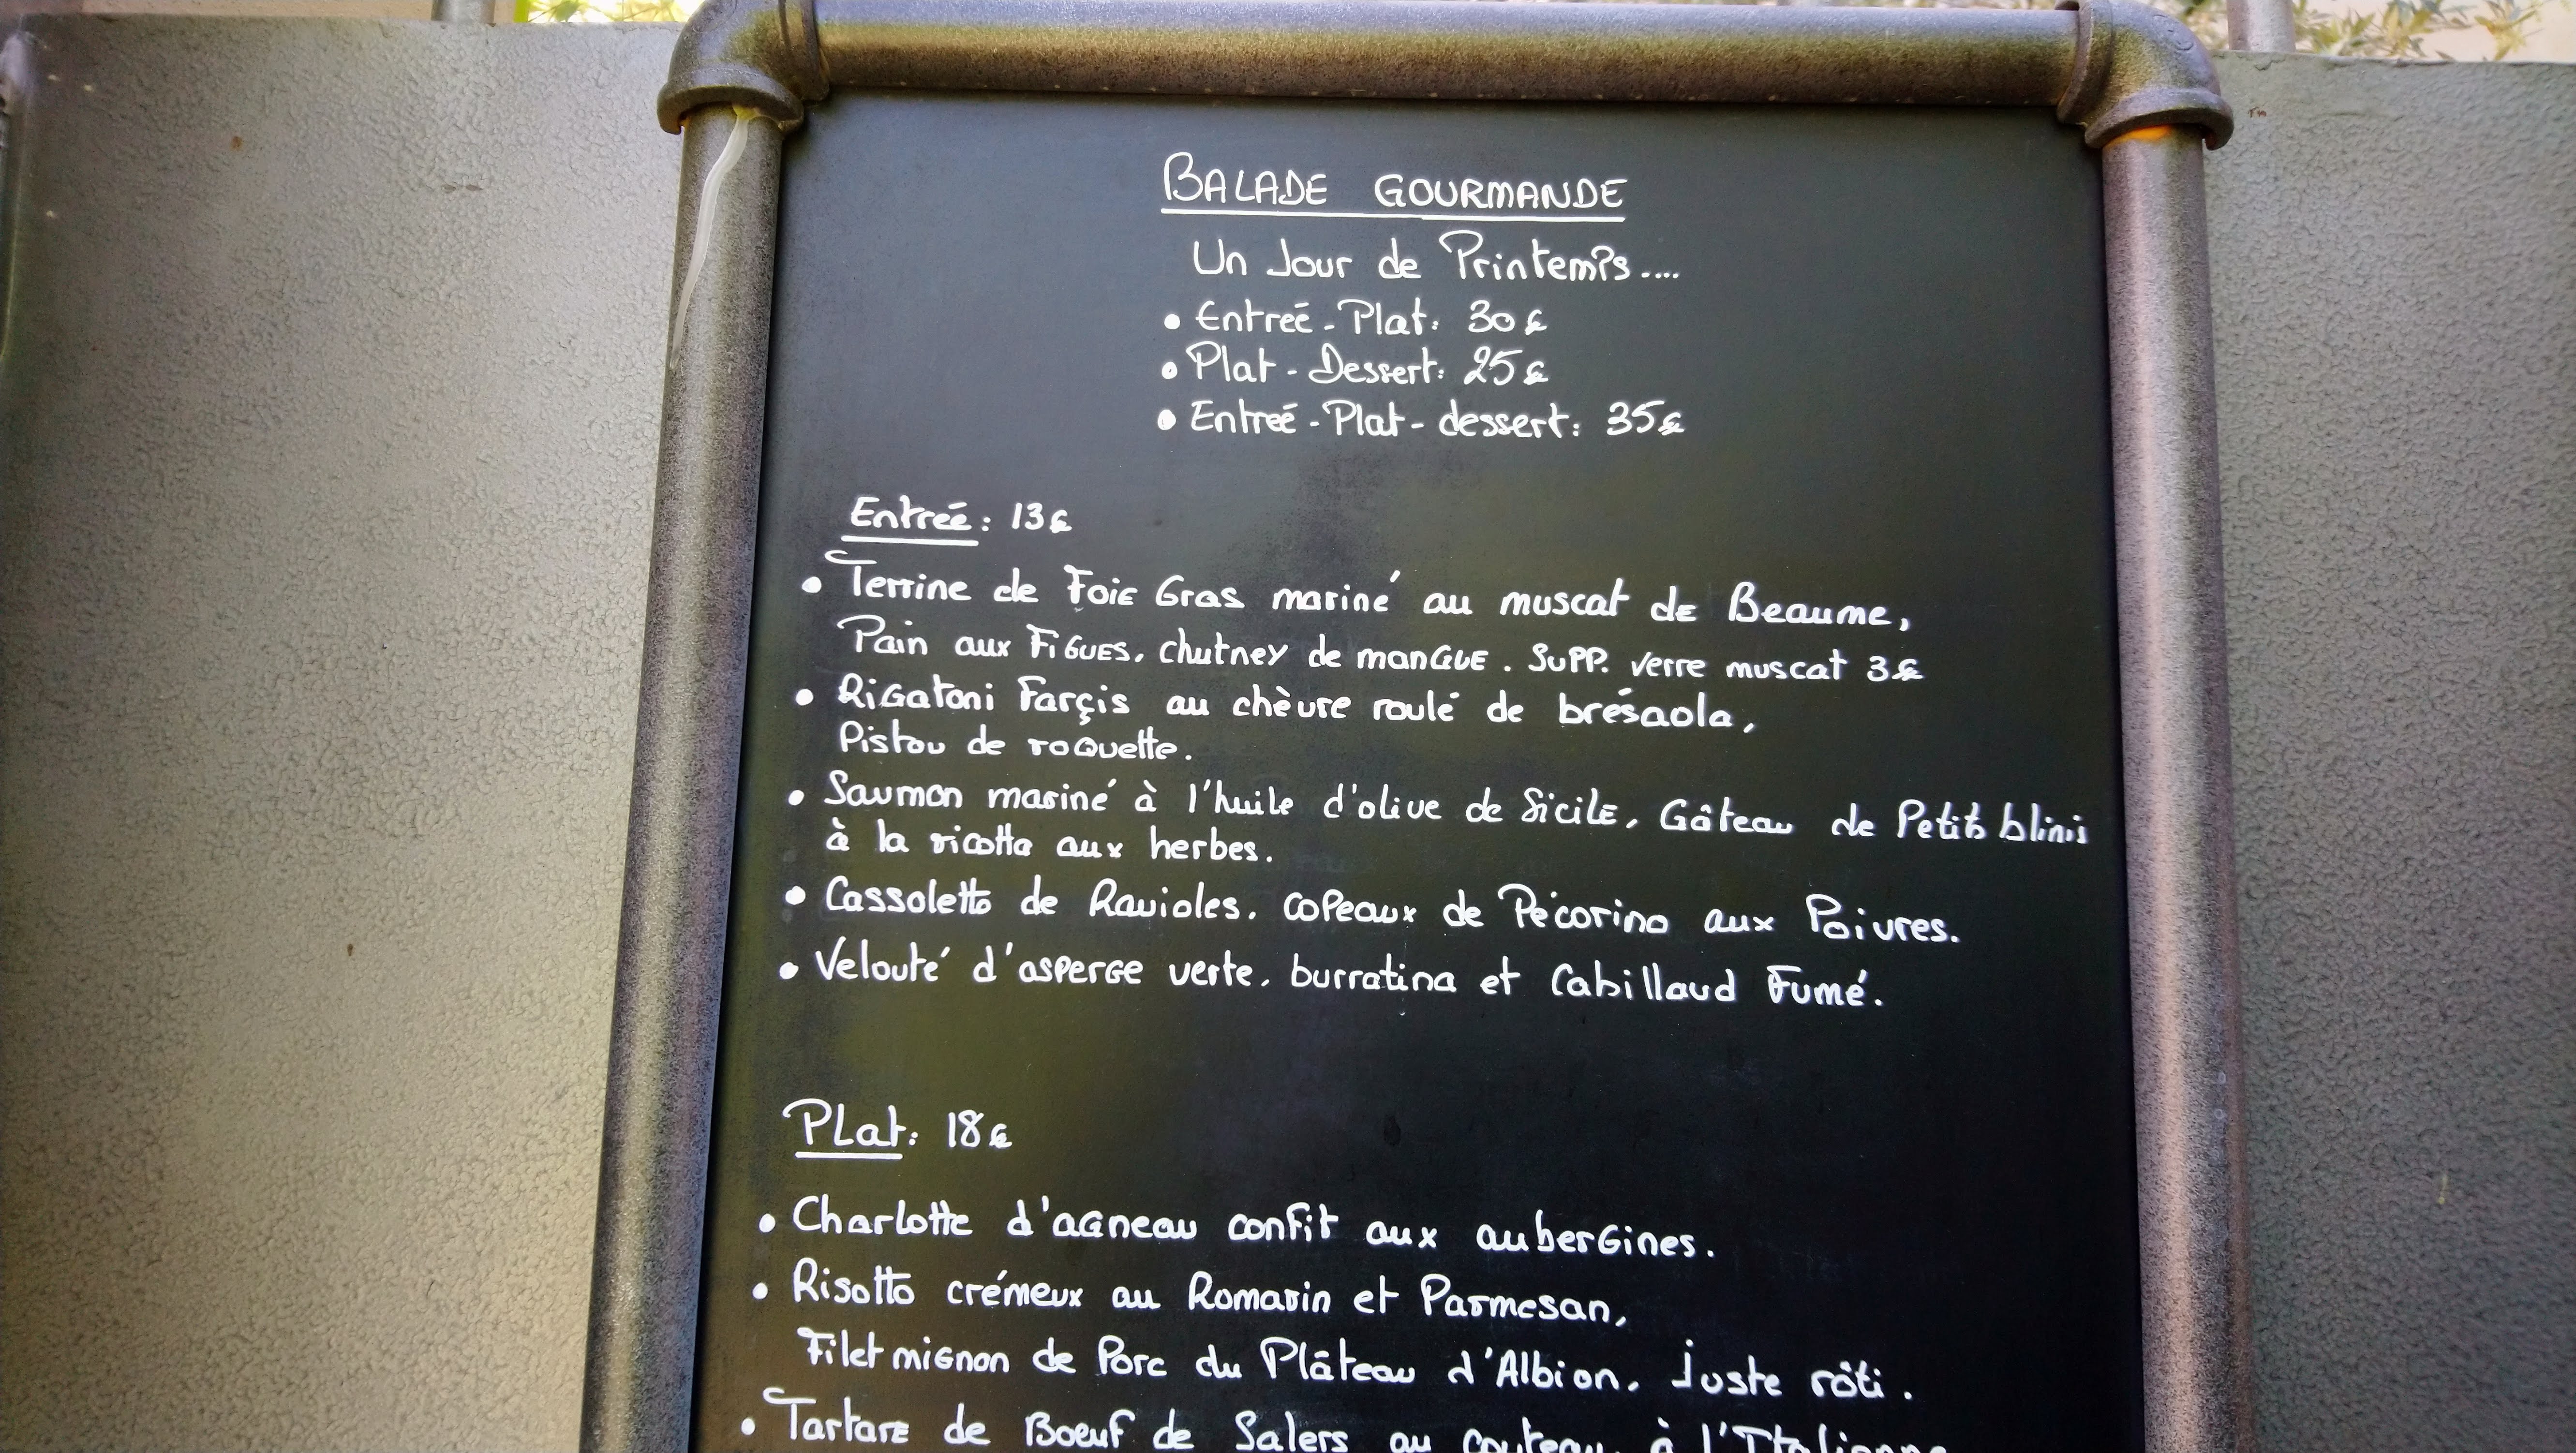 BALADE GOURMANDE
Un Jour de Printemps....
• Entreé - Plat: 30€
• Plat - Dessert: 25€
• Entreé - Plat - dessert: 35€
Entreé: 13€
• Terrine de Foie Gras mariné au muscat de Beaume,
Pain aux Figues, chutney de mangue. Supp. verre muscat 3€
• Rigatoni Farçis au chèvre roulé de brésaola,
Pistou de roquette.
• Saumon mariné à l'huile d'olive de Sicile, Gâteau de Petits blinis
à la ricotta aux herbes.
• Cassolette de Ravioles, copeaux de Pécorino aux Poivres.
• Velouté d'asperge verte, burratina et Cabillaud Fumé.
PLat: 18€
• Charlotte d'agneau confit aux aubergines.
• Risotto crémeux au Romarin et Parmesan,
Filet mignon de Porc du Plâteau d'Albion, juste rôti.
• Tartare de Boeuf de Salers au couteau, à l'Italienne